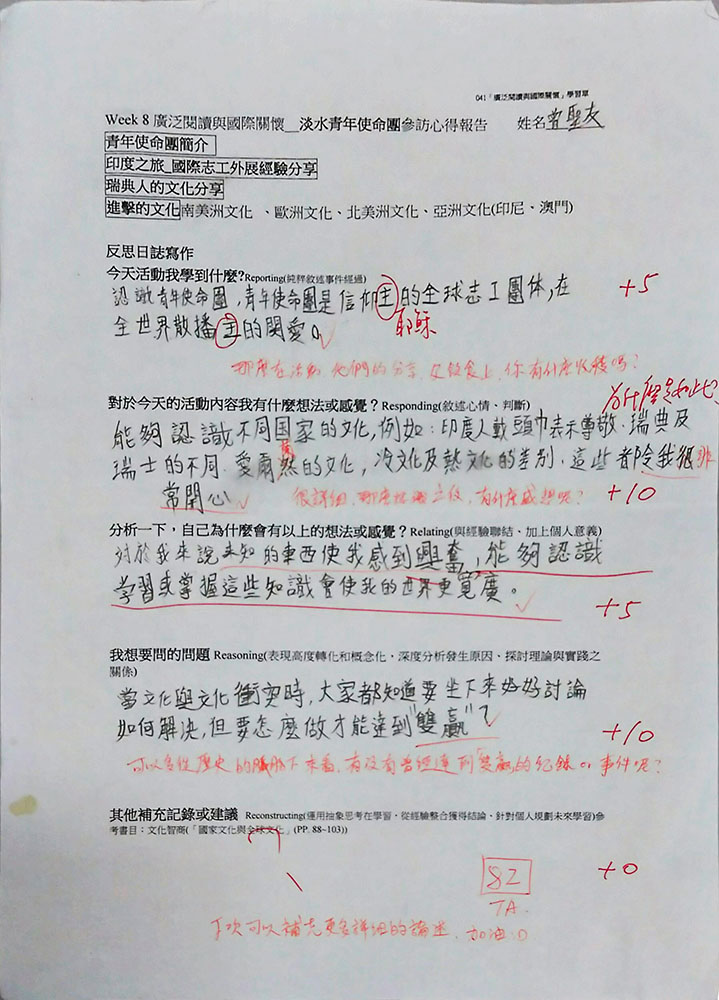 041「廣泛閱讀與國際關懷」學習單
Week 8 廣泛閱讀與國際關懷__淡水青年使命團參訪心得報告 姓名 曾聖友
青年使命團簡介
印度之旅_國際志工外展經驗分享
瑞典人的文化分享
進擊的文化南美洲文化 、歐洲文化、北美洲文化、亞洲文化(印尼、澳門)
反思日誌寫作
今天活動我學到什麼?Reporting(純粹敘述事件經過)
認識青年使命團,青年使命團是信仰主的全球志工團体,在
+5
全世界散播主的關愛。
耶穌
那麼在活動、他們的分享、文飲食上,你有什麼收穫嗎?
為什麼是如此?
對於今天的活動內容我有什麼想法或感覺?Responding(敘述心情、判斷)
能夠認識不同国家的文化,例如:印度人戴頭巾表示尊敬、瑞典及
瑞士的不同、愛爾然的文化,冷文化及熱文化的差別,這些都令我很非
蘭
常開心
很詳細,那麼在這之後,有什麼感想呢?
+10
分析一下,自己為什麼會有以上的想法或感覺?Relating(與經驗聯結、加上個人意義)
對於我來說未知的東西使我感到興奮,能夠認識
学習或掌握這些知識會使我的世界更寬廣。
+5
我想要問的問題 Reasoning(表現高度轉化和概念化,深度分析發生原因、探討理論與實踐之
關係)
當文化與文化衝突時,大家都知道要坐下來好好討論
如何解決,但要怎麼做才能達到"雙贏"?
+10
可以多從歷史的脈絡下來看,有沒有曾經達到"雙贏"的紀錄or事件呢?
其他補充記錄或建議 Reconstructing(運用抽象思考在學習,從經驗整合獲得結論、針對個人規劃未來學習)參
考書目:文化智商(「國家文化與全球文化」(PP. 88~103))
+0
82
TA.
下次可以補充更多詳細的論述,加油:D